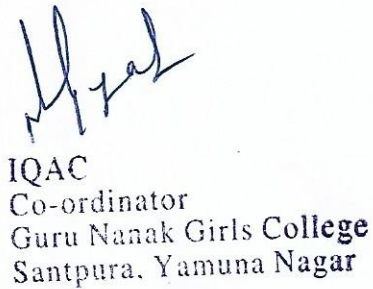 IQAC
Co-ordinator
Guru Nanak Girls College
Santpura, Yamuna Nagar